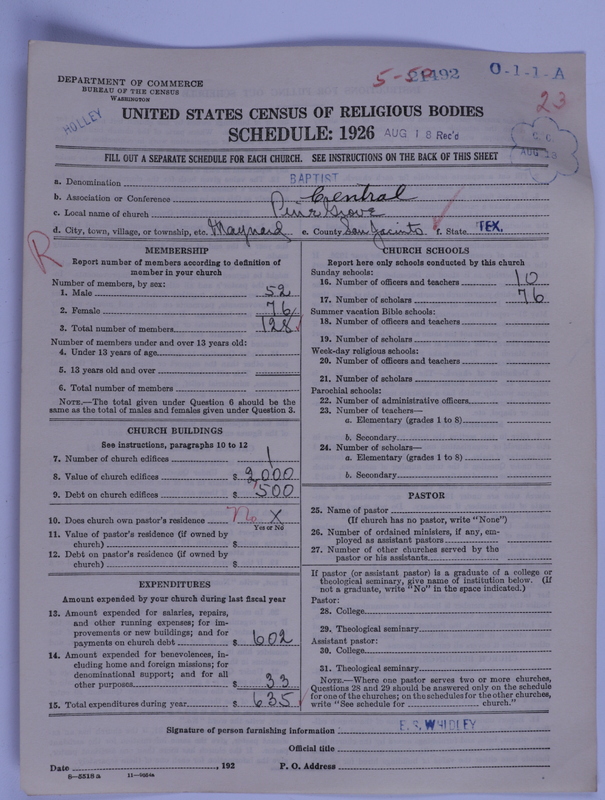 DEPARTMENT OF COMMERCE
BUREAU OF THE CENSUS
WASHINGTON
5-50
21492
O-1-1-A
23
HOLLEY
UNITED STATES CENSUS OF RELIGIOUS BODIES
SCHEDULE: 1926 AUG 18 Rec'd
FILL OUT A SEPARATE SCHEDULE FOR EACH CHURCH. SEE INSTRUCTIONS ON THE BACK OF THIS SHEET
a. Denomination BAPTIST
b. Association or Conference Central
c. Local name of church Grove
d. City, town, village, or township, etc. Maynard e. County San Jacinto f. State TEX.
R
MEMBERSHIP
Report number of members according to definition of
member in your church
Number of members, by sex:
1. Male 52
2. Female 76
3. Total number of members 128
Number of members under and over 13 years old:
4. Under 13 years of age
5. 13 years old and over
6. Total number of members
NOTE.—The total given under Question 6 should be the
same as the total of males and females given under Question 3.
CHURCH BUILDINGS
See instructions, paragraphs 10 to 12
7. Number of church edifices 1
8. Value of church edifices $ 2,000
9. Debt on church edifices $ 500
10. Does church own pastor's residence No X
Yes or No
11. Value of pastor's residence (if owned by
church) $
12. Debt on pastor's residence (if owned by
church) $
EXPENDITURES
Amount expended by your church during last fiscal year
13. Amount expended for salaries, repairs,
and other running expenses; for im-
provements or new buildings; and for
payments on church debt $ 602
14. Amount expended for benevolences, in-
cluding home and foreign missions; for
denominational support; and for all
other purposes $ 33
15. Total expenditures during year $ 635
CHURCH SCHOOLS
Report here only schools conducted by this church
Sunday schools:
16. Number of officers and teachers 10
17. Number of scholars 76
Summer vacation Bible schools:
18. Number of officers and teachers
19. Number of scholars
Week-day religious schools:
20. Number of officers and teachers
21. Number of scholars
Parochial schools:
22. Number of administrative officers
23. Number of teachers—
a. Elementary (grades 1 to 8)
b. Secondary
24. Number of scholars—
a. Elementary (grades 1 to 8)
b. Secondary
PASTOR
25. Name of pastor
(If church has no pastor, write "None")
26. Number of ordained ministers, if any, em-
ployed as assistant pastors
27. Number of other churches served by the
pastor or his assistants
If pastor (or assistant pastor) is a graduate of a college or
theological seminary, give name of institution below. (If
not a graduate, write "No" in the space indicated.)
Pastor:
28. College
29. Theological seminary
Assistant pastor:
30. College
31. Theological seminary
NOTE.—Where one pastor serves two or more churches,
Questions 28 and 29 should be answered only on the schedule
for one of the churches; on the schedules for the other churches,
write "See schedule for church."
Signature of person furnishing information E. S. WHIDLEY
Official title
Date , 192 P. O. Address
8—5518 a 11—9034a